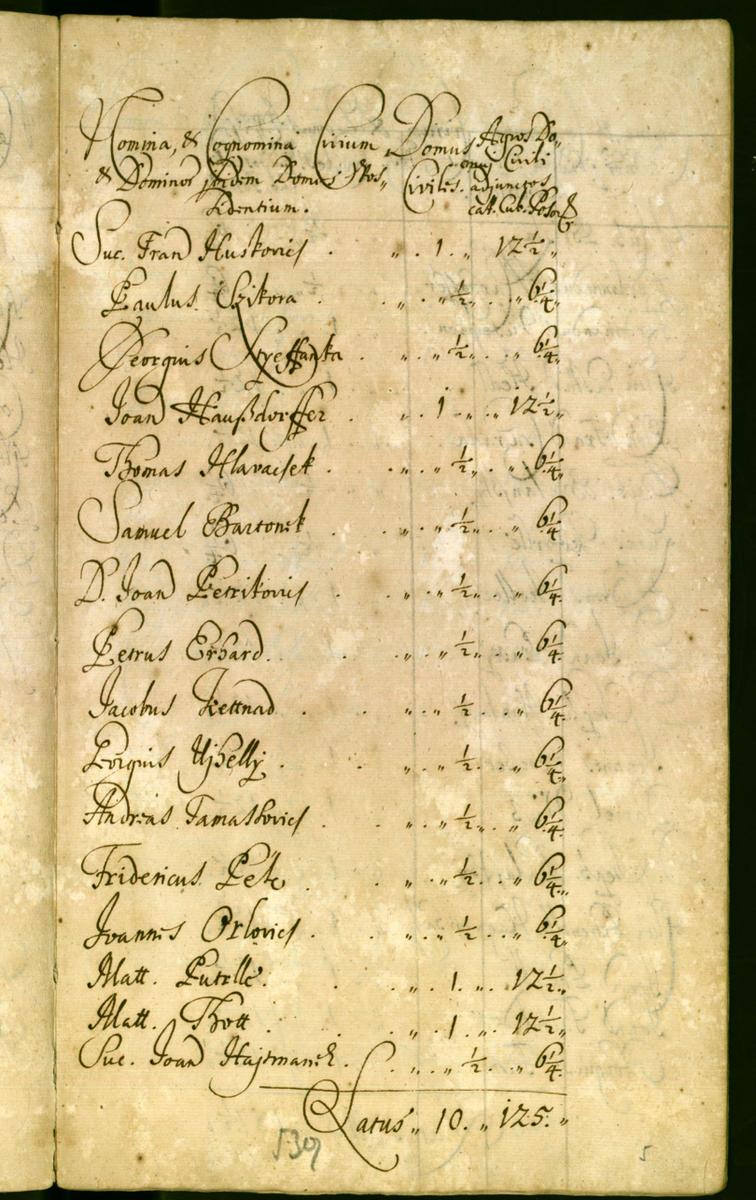 Nomina, & Cognomina Civium Domus Agros Do„
& Dominor ibidem Domus Pos„ Civiles. mui Civili
sidentium. adjunctos
cat. Cub. Poson
Suc. Fran Huskovics . „ . 1 . „ 12 1/2 „
Paulus Czikora . „ . „ 1/2 „ . „ 6 1/4 „
Georgius Szteffanka . „ . „ 1/2 „ . „ 6 1/4 „
Joan Haußdorffer . „ . 1 . „ . „ 12 1/2 „
Thomas Hlavacsek . „ . „ 1/2 „ . „ 6 1/4 „
Samuel Bartonek . „ . „ 1/2 „ . „ 6 1/4
D. Joan Petrikovics . „ . „ 1/2 „ . „ 6 1/4
Petrus Erhard . „ . „ 1/2 „ . „ 6 1/4
Jacobus Kettnad . „ . „ 1/2 . „ 6 1/4
Georgius Ujhelly . „ . „ 1/2 . „ 6 1/4 „
Andreas Tamaskovics . „ . „ 1/2 „ . „ 6 1/4
Fridericus Pete . „ . „ 1/2 . „ 6 1/4 „
Joannes Orlovics . „ . „ 1/2 . „ 6 1/4 „
Matt. Putelle . „ . 1 . „ . 12 1/2 „
Matt. Thott . „ . 1 . „ . 12 1/2 „
Suc. Joan Hajtmanek . „ . „ 1/2 . „ 6 1/4
Latus „ 10. „ 125. „
539
5